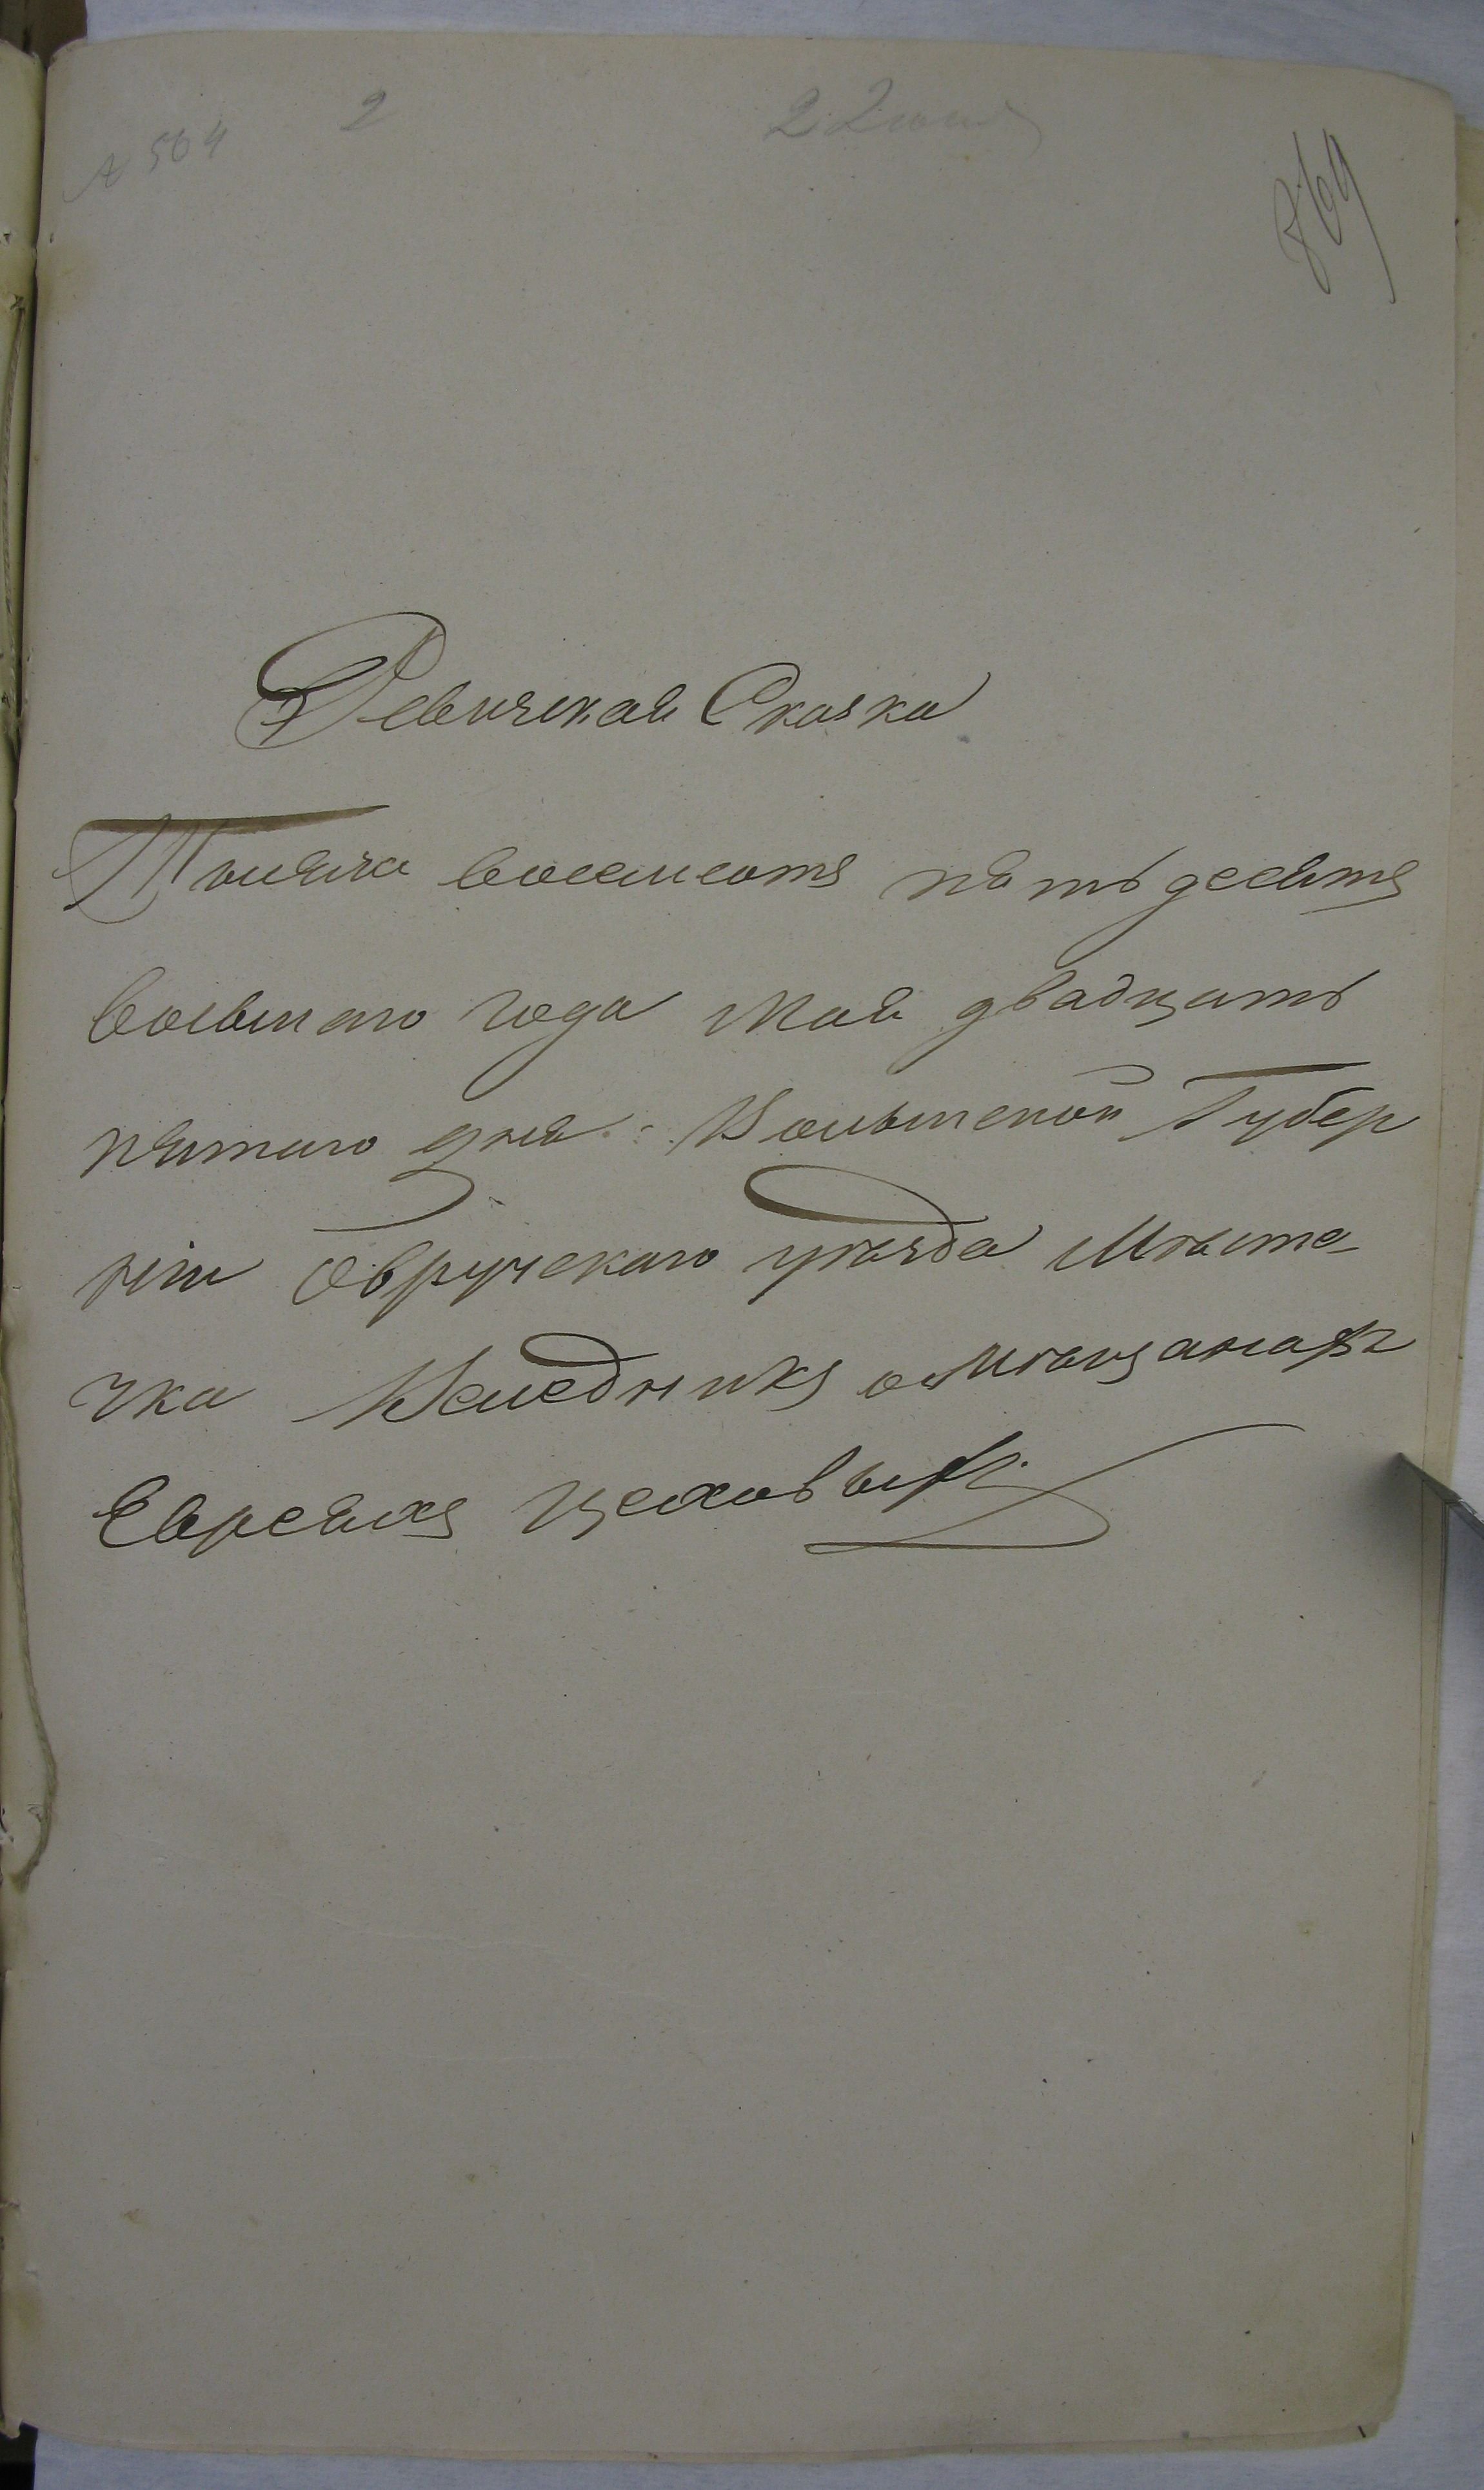 № 504 2 2 Июня
869
Ревизская Сказка
Тысяча восемсотъ пятьдесятъ
восьмаго года Мая двадцать
пятаго дня. Волынской Губер
ніи Овручскаго уѣзда Мѣсте-
чка Веледникъ о Мѣщанахъ
Евреяхъ цеховыхъ.